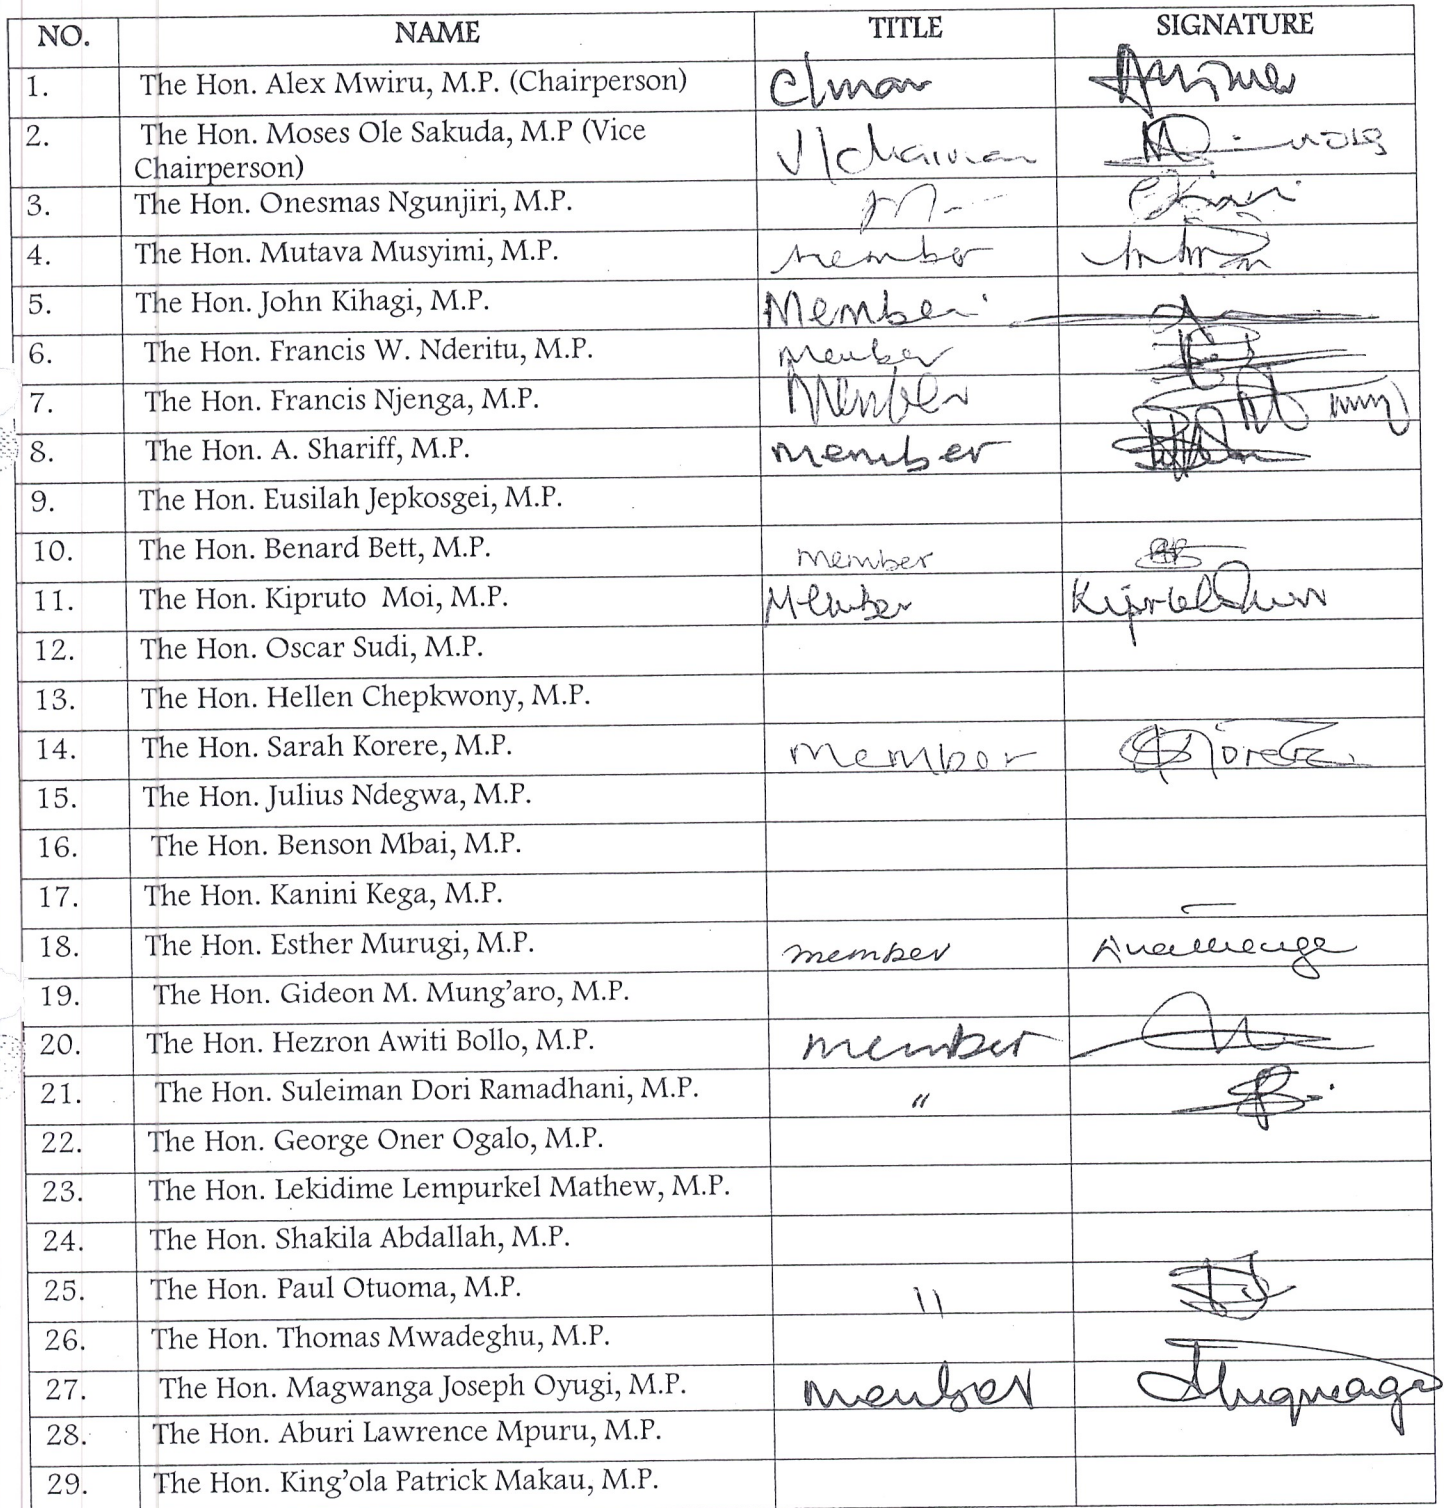 NO. NAME TITLE SIGNATURE
1. The Hon. Alex Mwiru, M.P. (Chairperson) C/man
2. The Hon. Moses Ole Sakuda, M.P (Vice
Chairperson) V/chairman
3. The Hon. Onesmas Ngunjiri, M.P.
4. The Hon. Mutava Musyimi, M.P. member
5. The Hon. John Kihagi, M.P. Member
6. The Hon. Francis W. Nderitu, M.P. member
7. The Hon. Francis Njenga, M.P. Member
8. The Hon. A. Shariff, M.P. member
9. The Hon. Eusilah Jepkosgei, M.P.
10. The Hon. Benard Bett, M.P. member
11. The Hon. Kipruto Moi, M.P. Member
12. The Hon. Oscar Sudi, M.P.
13. The Hon. Hellen Chepkwony, M.P.
14. The Hon. Sarah Korere, M.P. member
15. The Hon. Julius Ndegwa, M.P.
16. The Hon. Benson Mbai, M.P.
17. The Hon. Kanini Kega, M.P.
18. The Hon. Esther Murugi, M.P. member
19. The Hon. Gideon M. Mung'aro, M.P.
20. The Hon. Hezron Awiti Bollo, M.P. member
21. The Hon. Suleiman Dori Ramadhani, M.P. "
22. The Hon. George Oner Ogalo, M.P.
23. The Hon. Lekidime Lempurkel Mathew, M.P.
24. The Hon. Shakila Abdallah, M.P.
25. The Hon. Paul Otuoma, M.P. "
26. The Hon. Thomas Mwadeghu, M.P.
27. The Hon. Magwanga Joseph Oyugi, M.P. member
28. The Hon. Aburi Lawrence Mpuru, M.P.
29. The Hon. King'ola Patrick Makau, M.P.